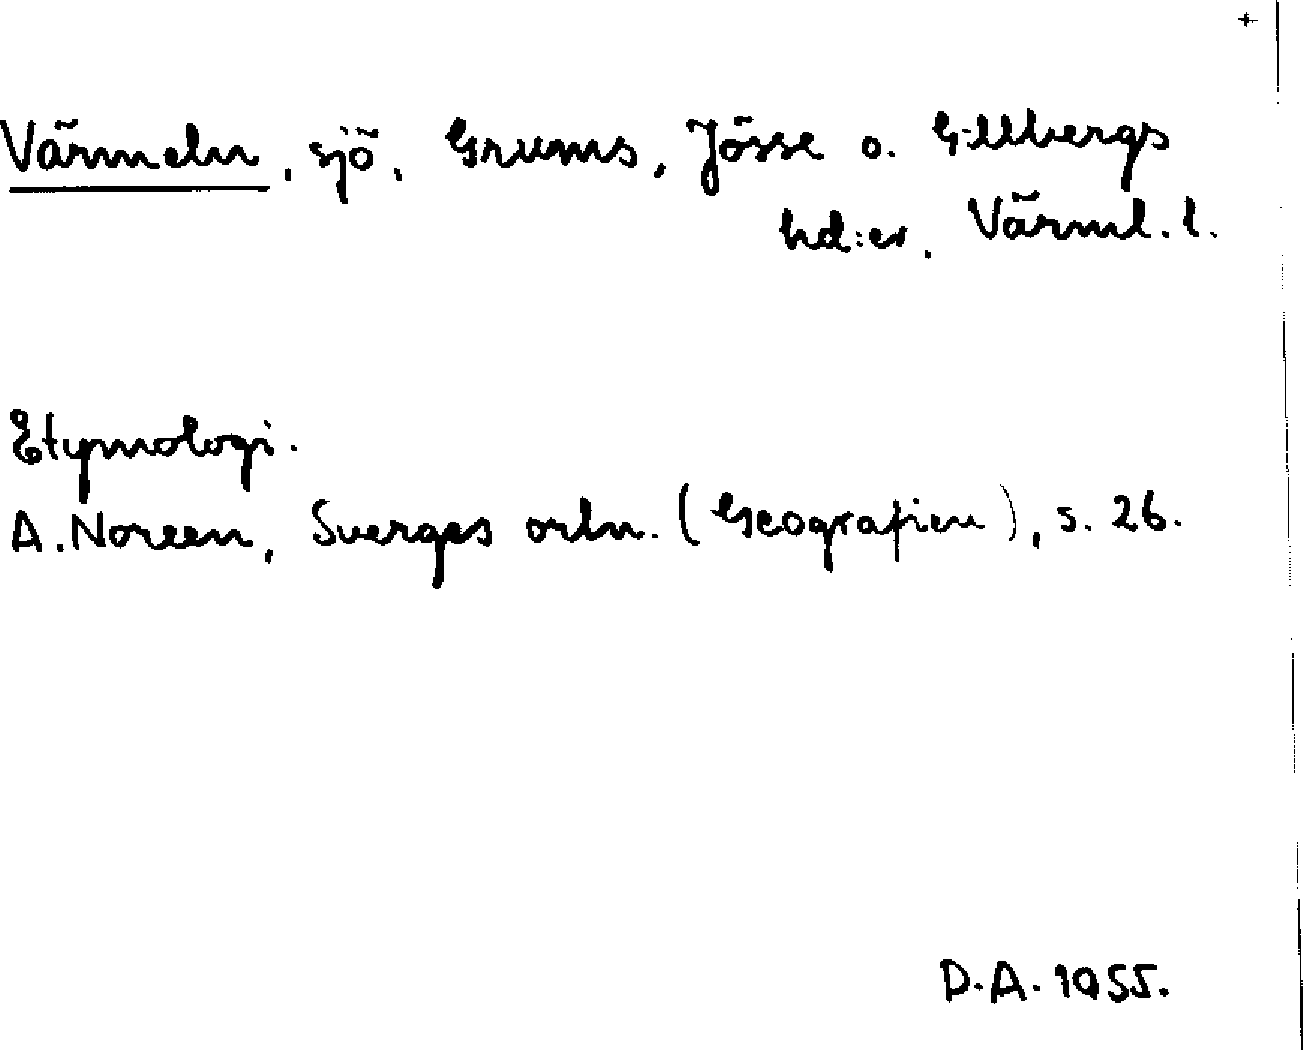 +
Värmeln, sjö, Grums, Jösse o. Gillbergs
hd:er, Värml. l.
Etymologi.
A. Noreen, Sverges ortn. (Geografien), s. 26.
D.A. 1955.